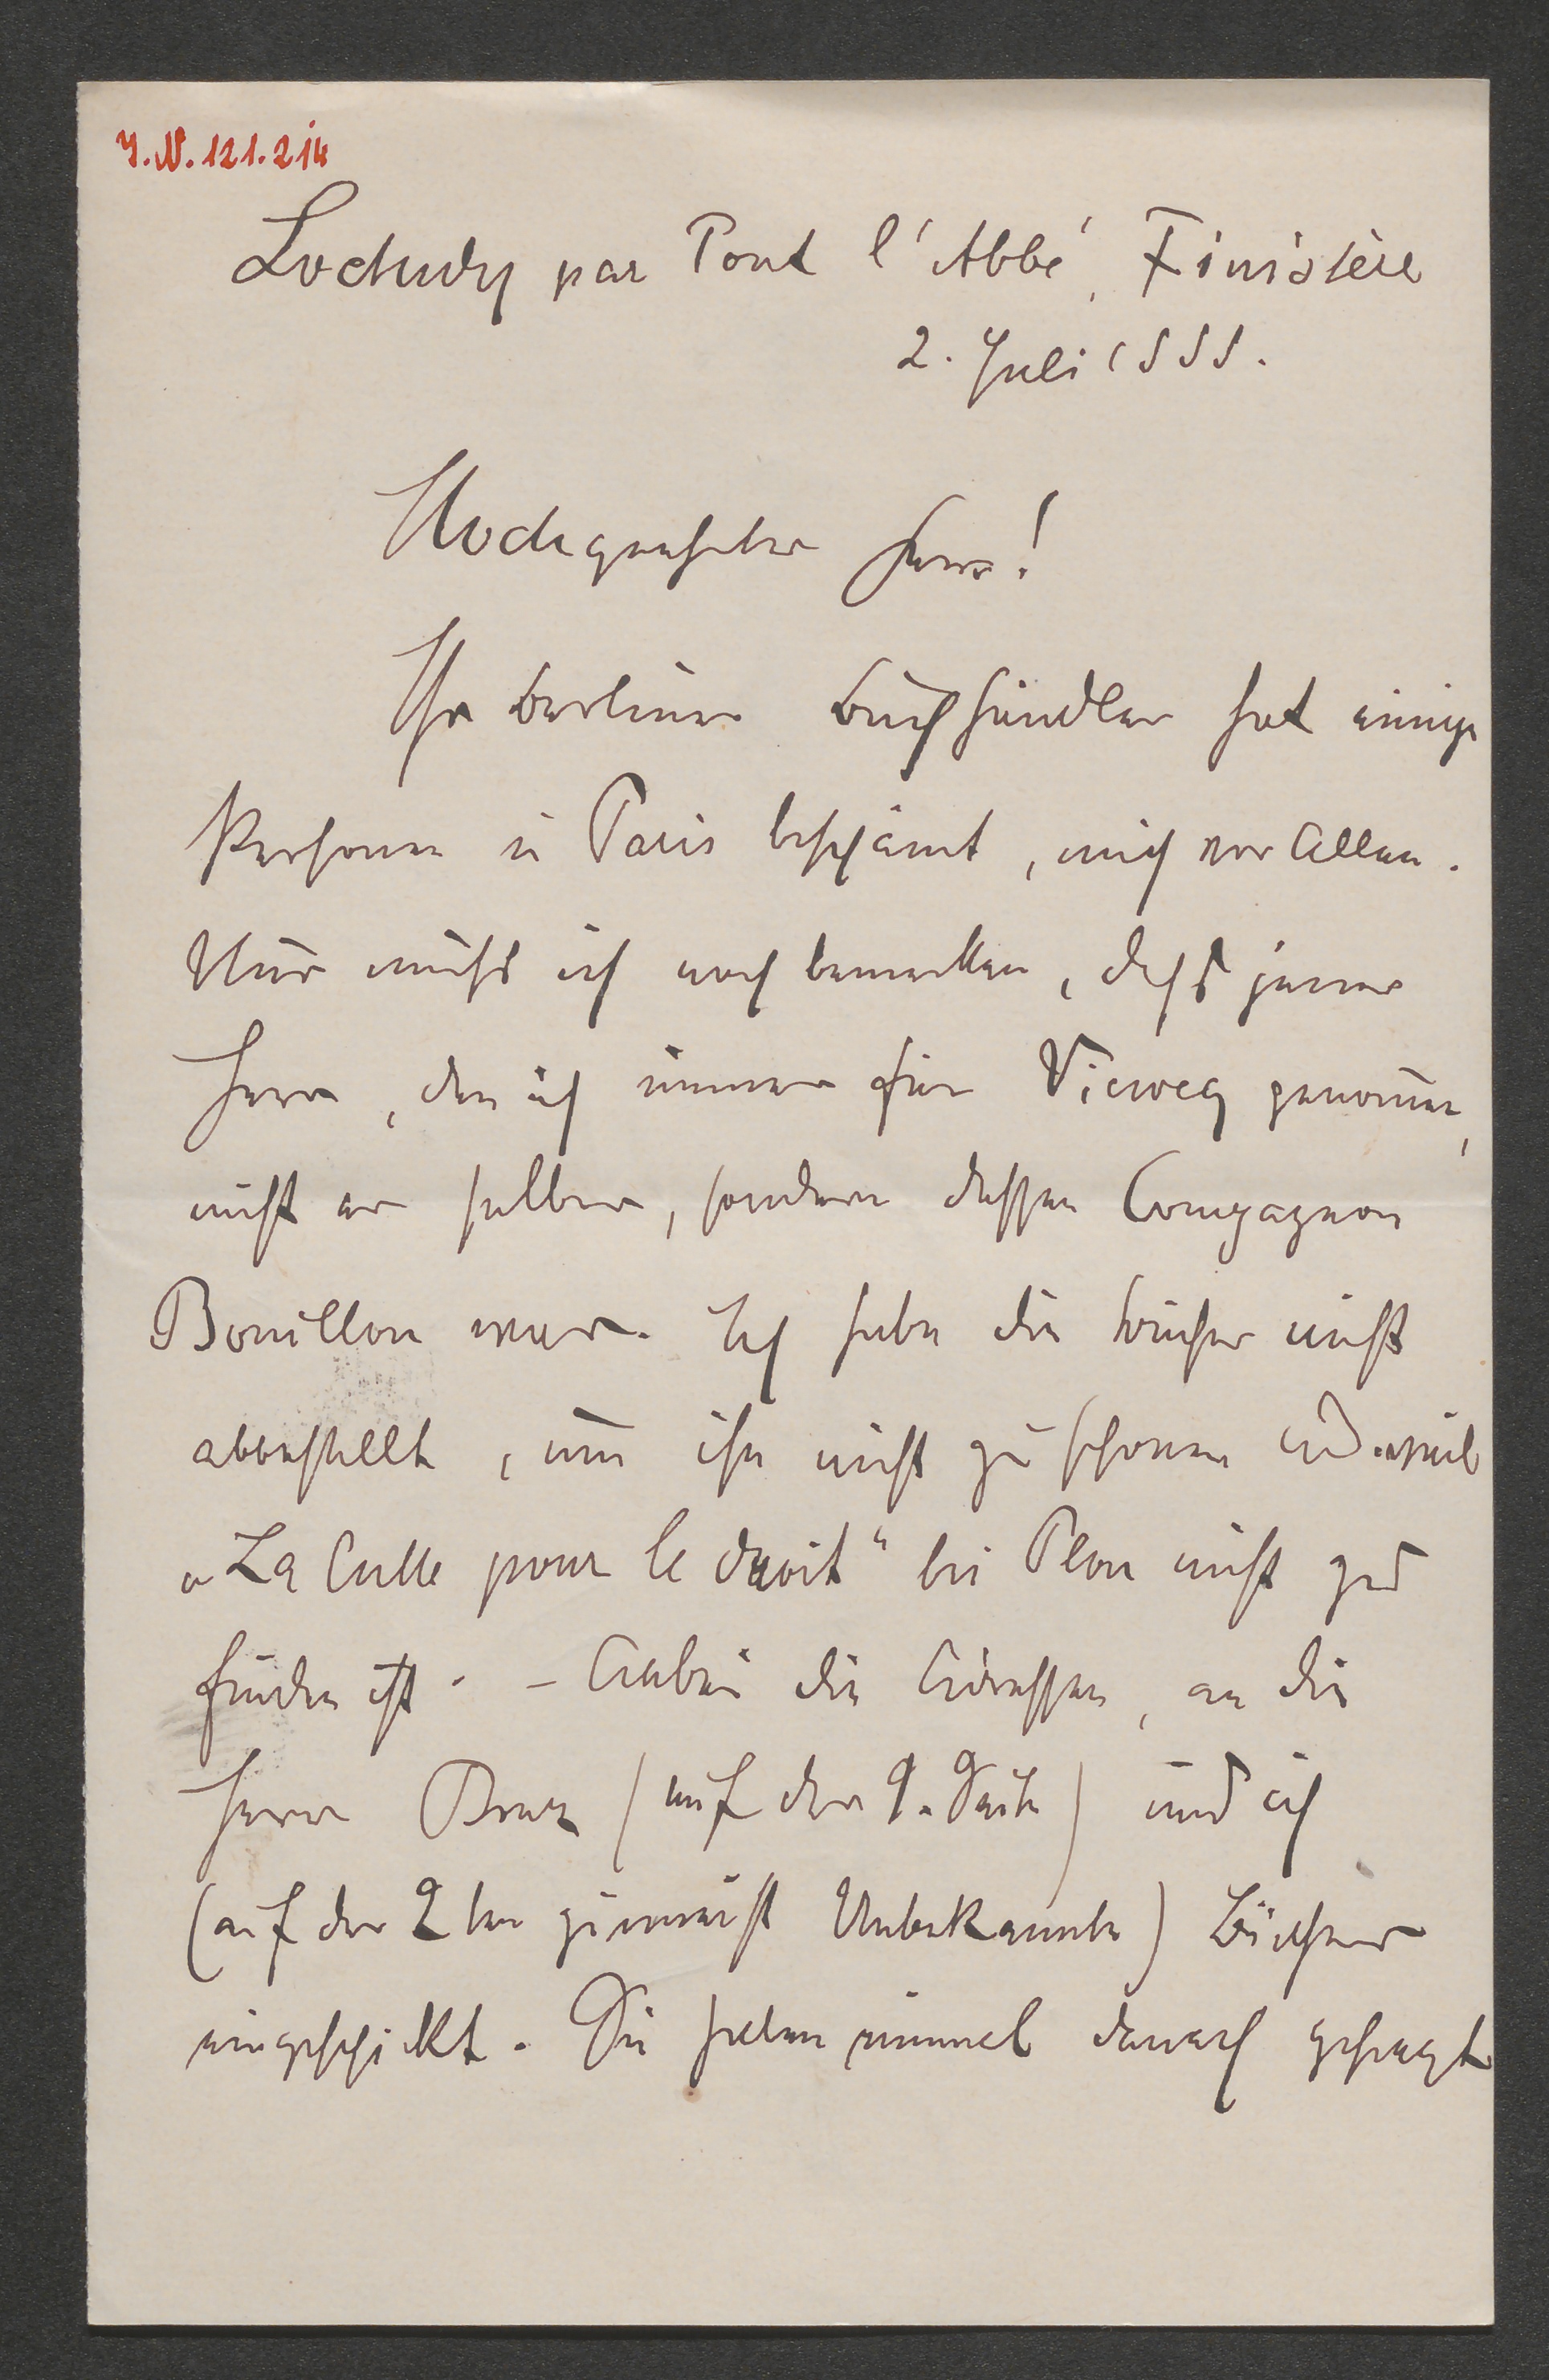 J.N. 121.214
Loctudy par Pont l'Abbé, Finistère
2. Juli 1888.
Hochgeehrter Herr!
Ihr berliner Buchhändler hat einige
Personen in Paris beschämt, mich vor Allen.
Nur muß ich noch bemerken, daß jener
Herr, den ich immer für Vieweg genommen,
nicht er selber, sondern dessen Compagnon
Bouillon war. Ich habe die Bücher nicht
abbestellt, um ihn nicht zu schonen und weil
„La lutte pour le droit“ bei Plon nicht zu
finden ist. – Anbei die Adressen, an die
Herr (auf der 1. Seite) und ich
(auf der 2ten zumeist Unbekannte) Bücher
eingeschickt. Sie haben einmal danach gefragt